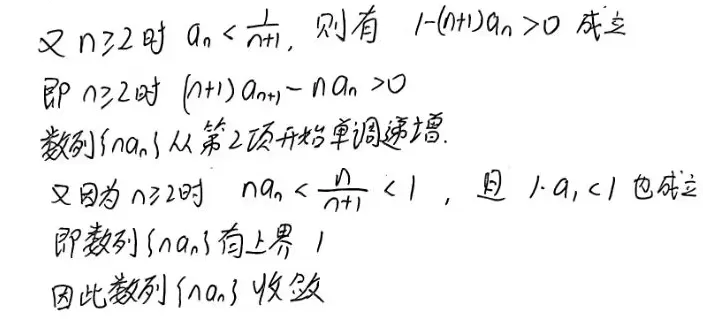 又 n≥2时 aₙ < 1/(n+1), 则有 1-(n+1)aₙ>0 成立
即 n≥2时 (n+1)aₙ₊₁-naₙ>0
数列{naₙ}从第2项开始单调递增.
又因为 n≥2时 naₙ < n/(n+1) < 1 , 且 1·a₁<1 也成立
即数列{naₙ}有上界 1
因此数列{naₙ}收敛